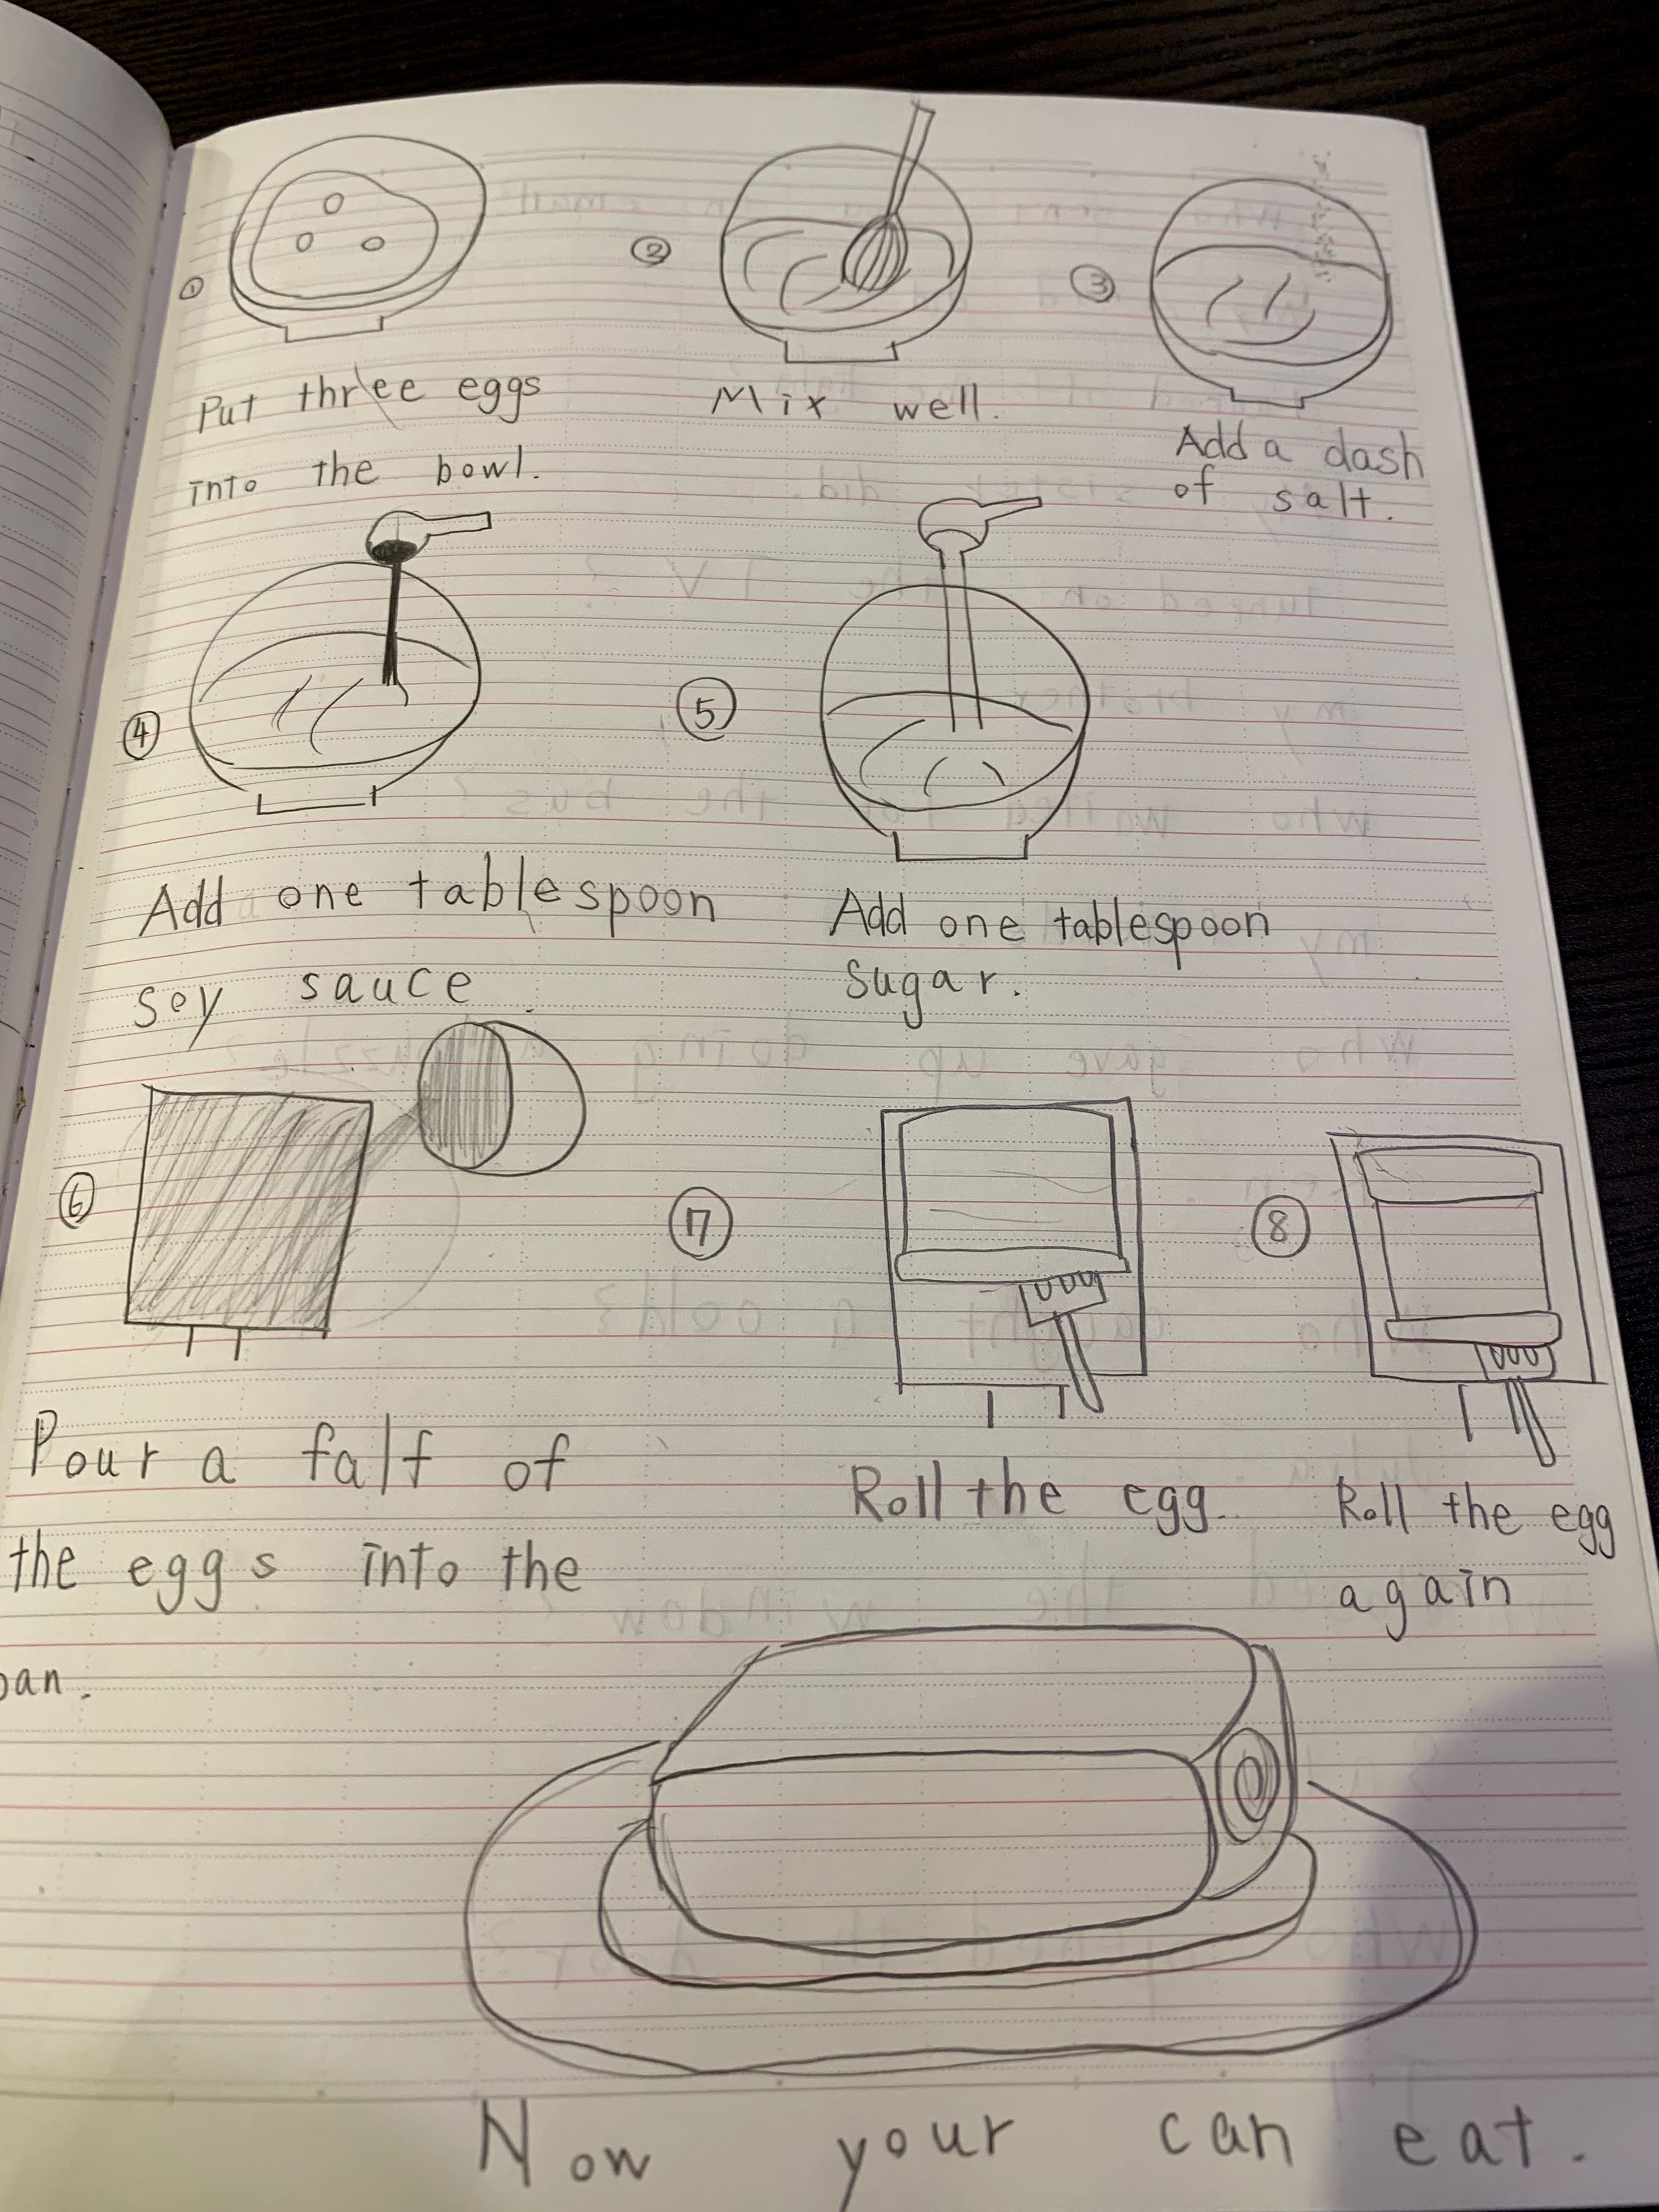 ①
Put three eggs
into the bowl.
②
Mix well.
③
Add a dash
of salt.
④
Add one tablespoon
soy sauce
⑤
Add one tablespoon
sugar.
⑥
Pour a falf of
the eggs into the
pan.
⑦
Roll the egg.
⑧
Roll the egg
again
Now your can eat.